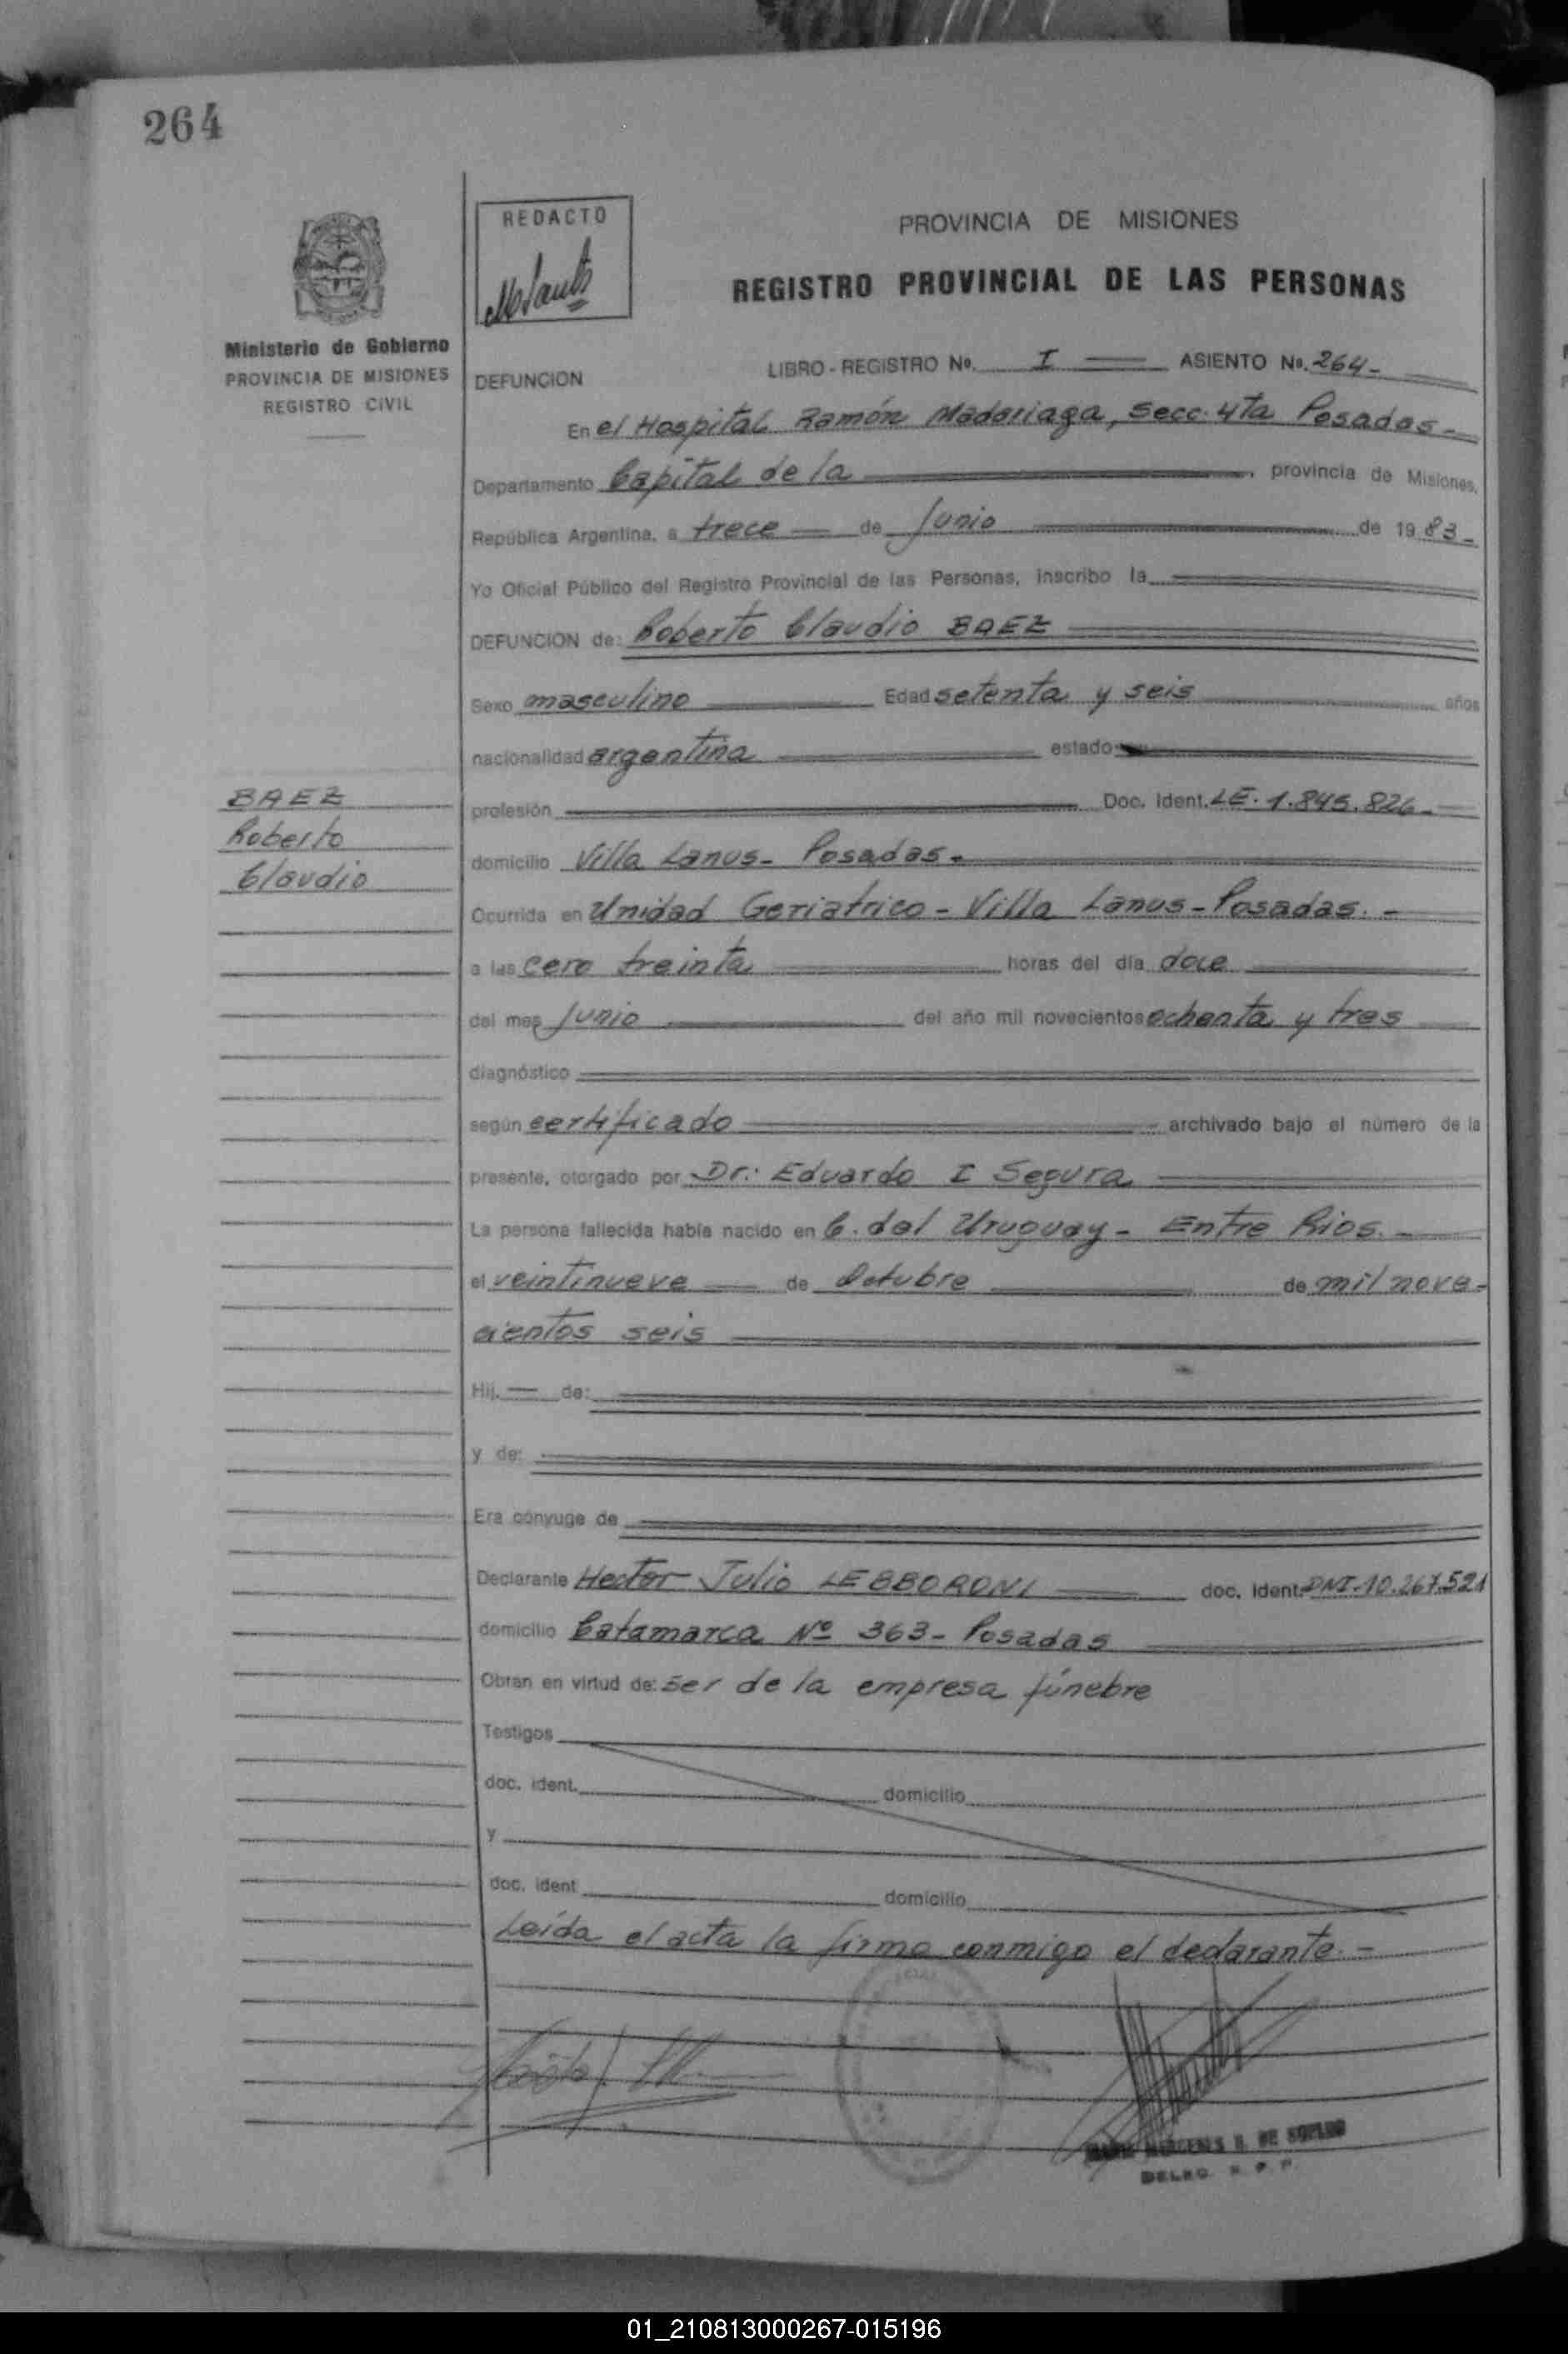 264
REDACTO
PROVINCIA DE MISIONES
REGISTRO PROVINCIAL DE LAS PERSONAS
Ministerio de Gobierno
PROVINCIA DE MISIONES
REGISTRO CIVIL
LIBRO - REGISTRO No. I ASIENTO No. 264-
DEFUNCION
En el Hospital Ramón Madariaga, Secc. 4ta Posadas-
Departamento Capital de la , provincia de Misiones,
República Argentina, a trece de Junio de 1983-
Yo Oficial Público del Registro Provincial de las Personas, inscribo la
DEFUNCION de: Roberto Claudio BAEZ
Sexo masculino Edad setenta y seis años
nacionalidad argentina estado
BAEZ
Roberto
Claudio
profesión Doc. Ident. LE. 1.845.826-
domicilio Villa Lanus- Posadas-
Ocurrida en Unidad Geriatrico - Villa Lanus - Posadas. -
a las cero treinta horas del día doce
del mes Junio del año mil novecientos ochenta y tres
diagnóstico
según certificado archivado bajo el número de la
presente, otorgado por Dr.: Eduardo I Segura
La persona fallecida había nacido en C. del Uruguay - Entre Rios. -
el veintinueve de Octubre de mil nove-
cientos seis
Hij. — de:
y de:
Era cónyuge de
Declarante Hector Julio LEBBORONI doc. ident. DNI-10.267.521
domicilio Catamarca Nº 363- Posadas
Obran en virtud de: ser de la empresa fúnebre
Testigos
doc. ident. domicilio
y
doc. ident domicilio
Leída el acta la firma conmigo el declarante. -
DE
DELEG. R. P. P.
01_210813000267-015196